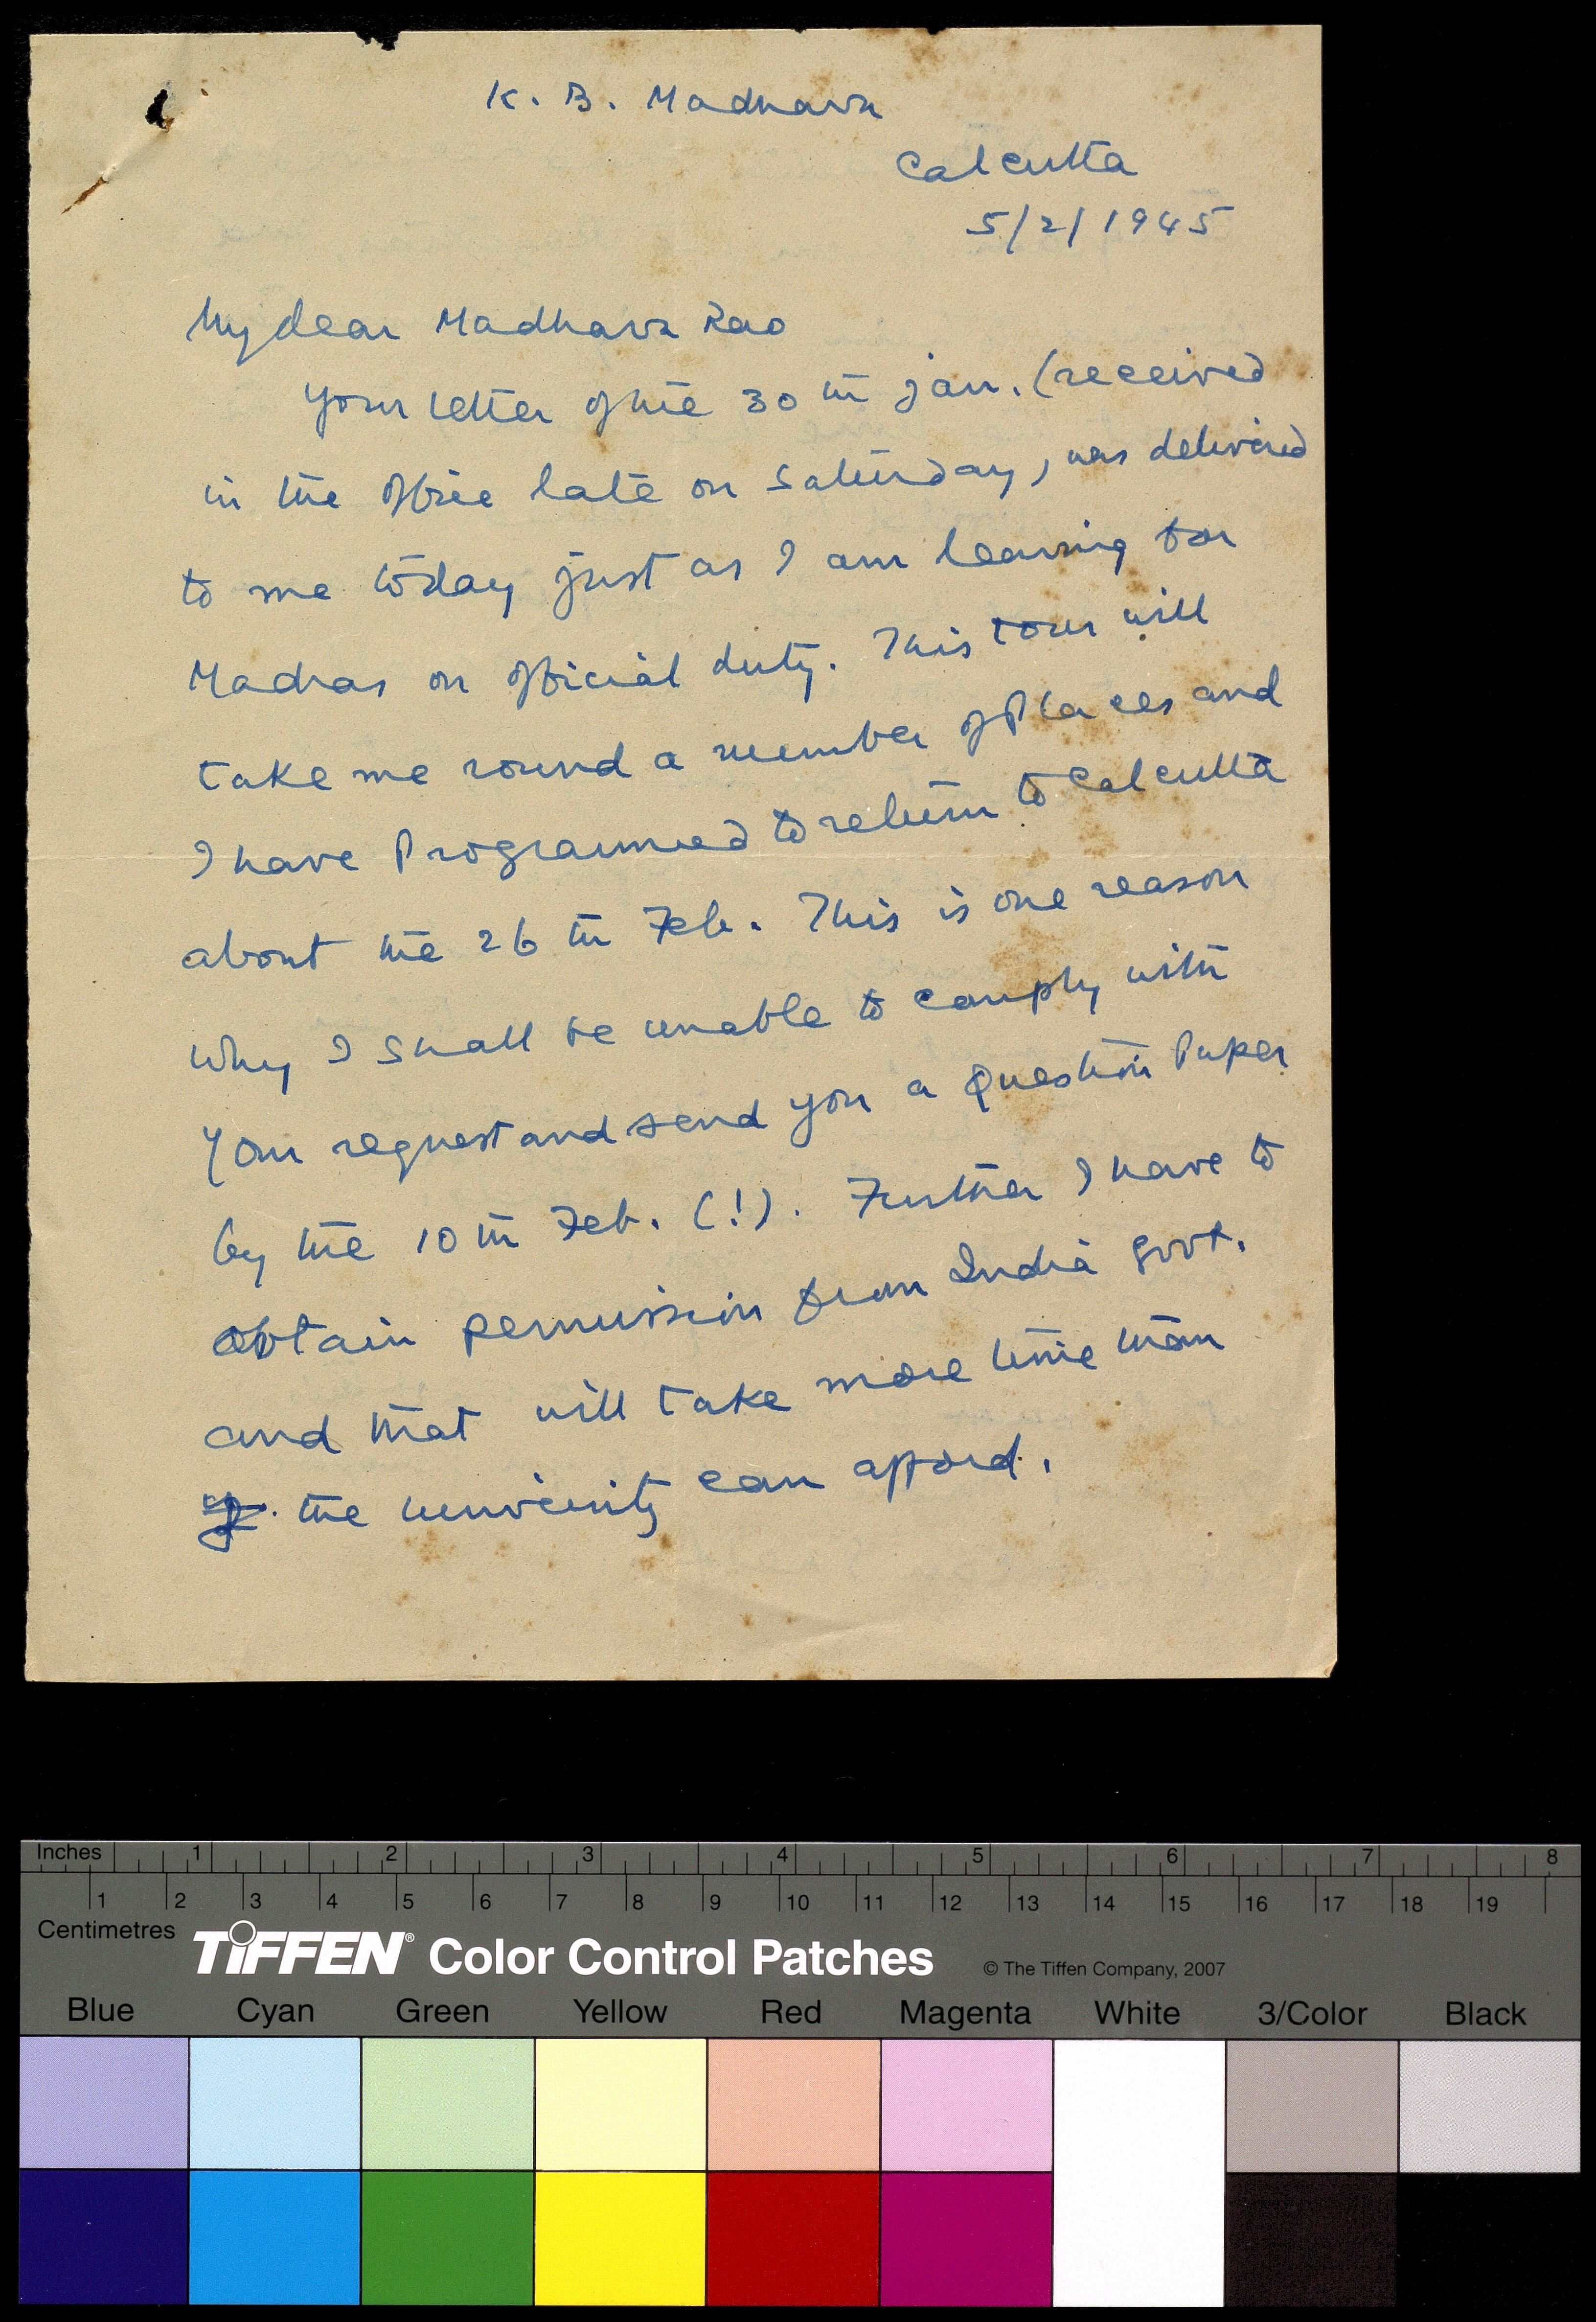 K. B. Madhava
Calcutta
5/2/1945
My dear Madhava Rao
Your letter of the 30 th Jan. (received
in the office late on Saturday) was delivered
to me today just as I am leaving for
Madras on official duty. This tour will
take me round a number of places and
I have programmed to return to Calcutta
about the 26 th Feb. This is one reason
why I shall be unable to comply with
your request and send you a Question Paper
by the 10 th Feb. (!). Further I have to
obtain permission from India Govt.
and that will take more time than
the university can afford.
Inches 1 2 3 4 5 6 7 8
1 2 3 4 5 6 7 8 9 10 11 12 13 14 15 16 17 18 19
Centimetres
TIFFEN® Color Control Patches © The Tiffen Company, 2007
Blue Cyan Green Yellow Red Magenta White 3/Color Black